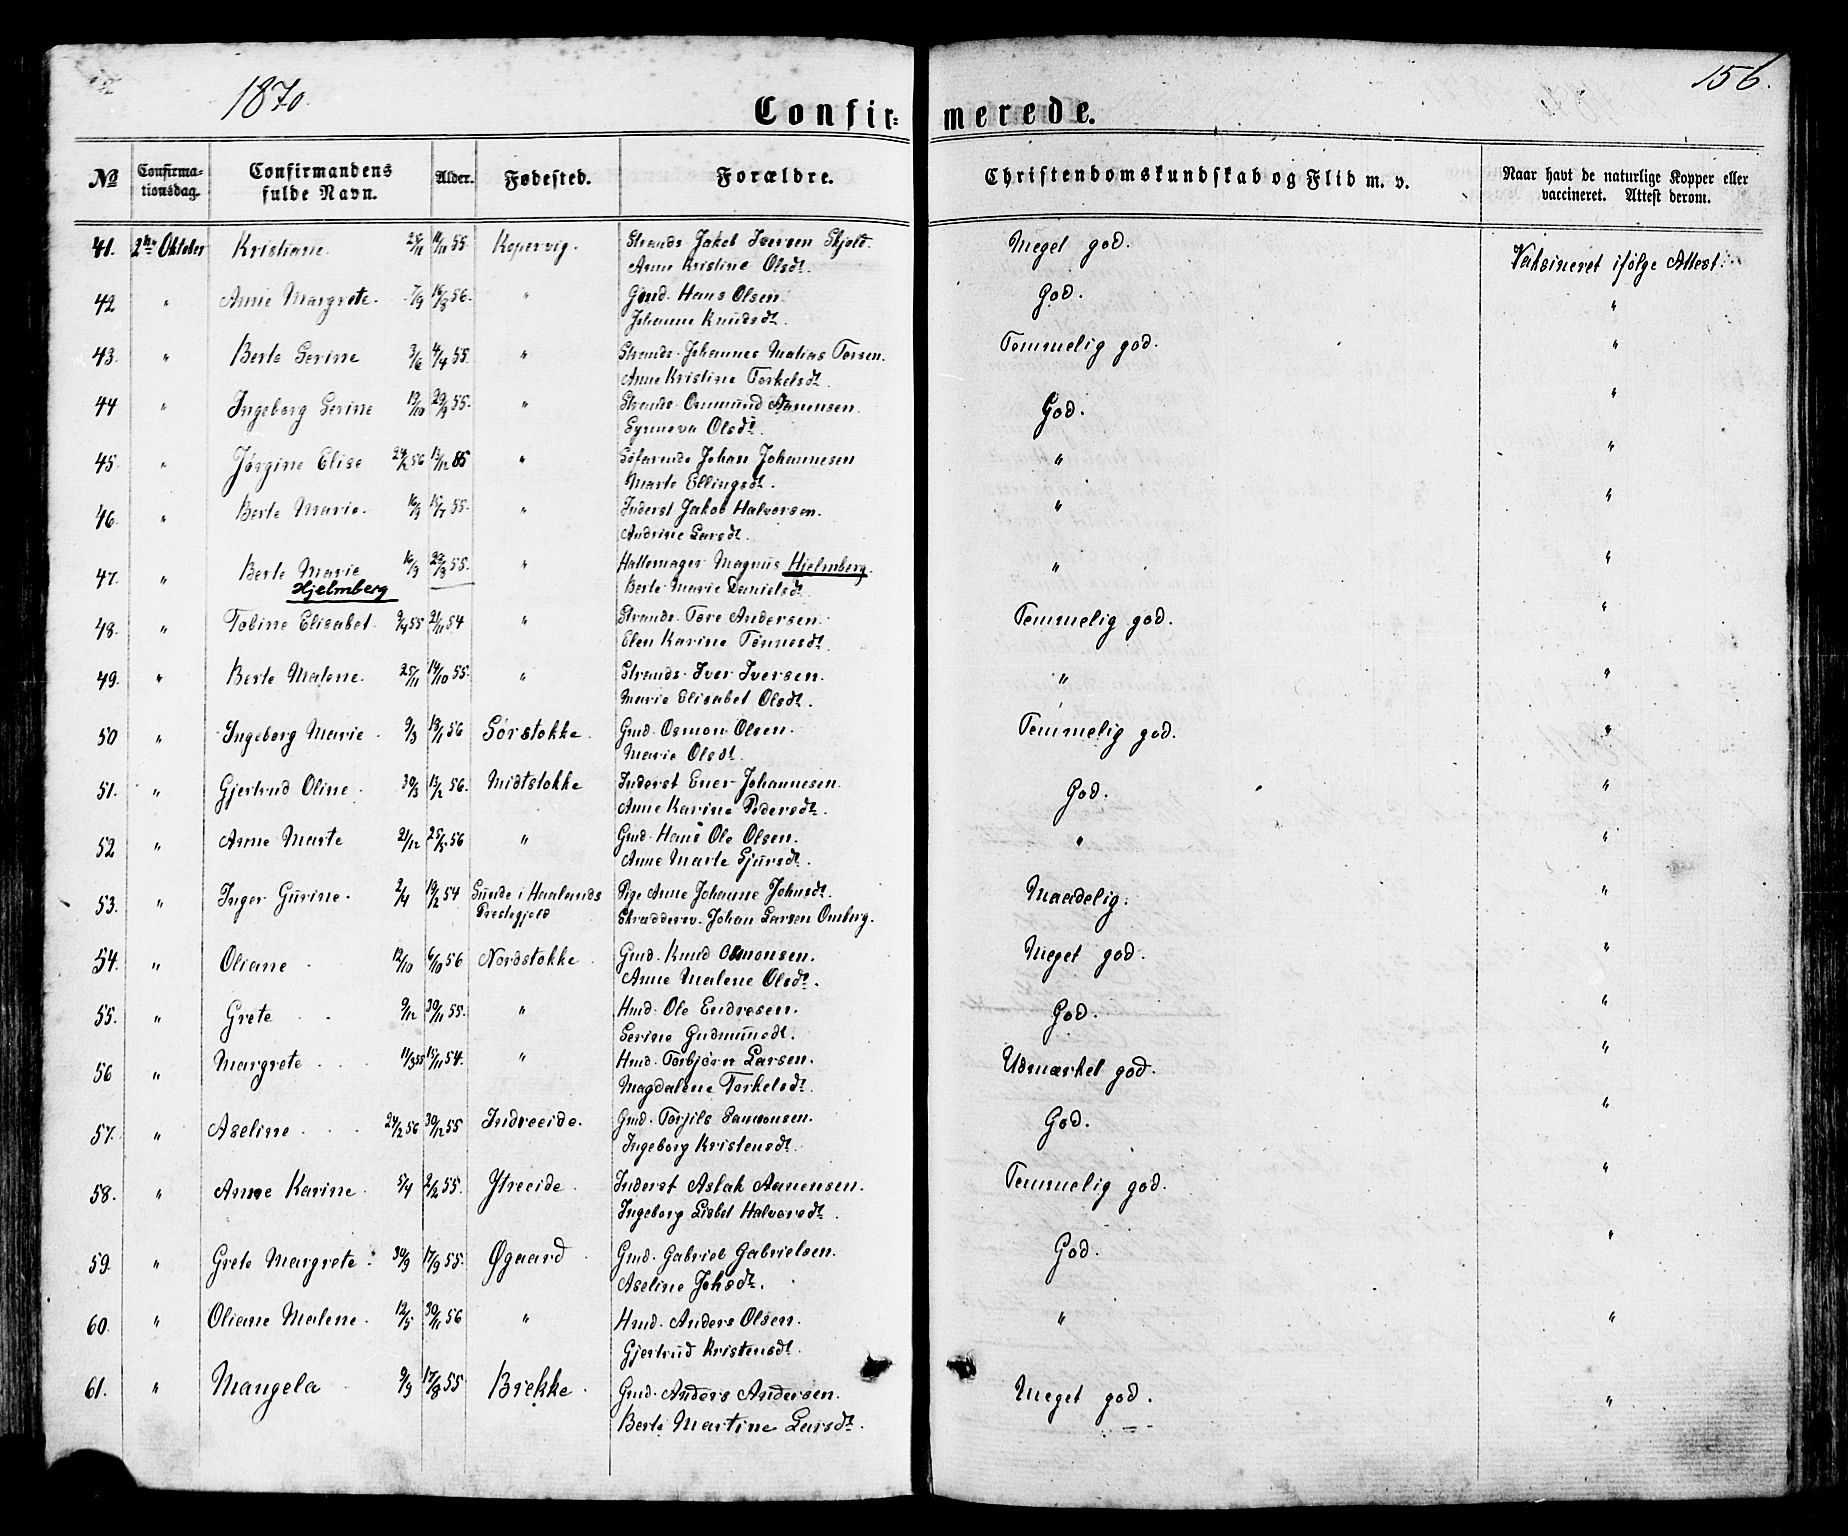 1870.
156.
Confir=merede.
No Confirma-tionsdag. Confirmandens fulde Navn. Alder. Fødested. Forældre. Christendomskundskab og Flid m. v. Naar havt de naturlige Kopper eller vaccineret. Attest derom.
41. 2den Oktober Kristiane. 25/11 55. Kopervig. Strands. Jakob Iversen Skjold. Meget god. Vaksineret ifølge Attest.
Anne Kristine Olsdt.
42 " Anne Margrete. 7/9 16/8 56. " Gmd. Hans Olsen. God. "
Johanne Knudsdt.
43. " Berte Serine 3/6 4/4 55. " Strands. Johannes Matias Torsen. Temmelig god. "
Anne Kristine Torkelsdt.
44 " Ingeborg Serine 19/10 29/9 55. " Strands. Osmund Aanensen. God. "
Synneva Olsdt.
45. " Jørgine Elise 24/2 56 13/12 85 " Søfarende Johan Johannesen " "
Marte Ellingsdt.
46. " Berte Marie. 16/9 15/7 55. " Inderst Jakob Halvorsen. " "
Andrine Larsdt.
47. " Berte Marie 16/9 22/8 55. " Hattemager Magnus Hjelmberg. " "
Hjelmberg Berte Marie Danielsdt.
48. " Tobine Elisabet. 9/4 55 21/11 54 " Strands. Tore Andersen. Temmelig god. "
Elen Karine Tønnesdt.
49. " Berte Malene. 25/11 14/10 55. " Strands. Iver Iversen. " "
Marie Elisabet Olsdt.
50 " Ingeborg Marie. 9/3 18/1 56 Sørstokke. Gmd. Osmon Olsen. Temmelig god. "
Marie Olsdt.
51. " Gjertrud Oline. 30/3 13/2 56. Midtstokke Inderst Ener Johannesen. God. "
Anne Karine Pedersdt.
52 " Anne Marte 21/12 25/5 56 " Gmd. Hans Ole Olsen. " "
Anne Marte Sjursdt.
53. " Inger Gurine. 2/4 19/2 54 Sunde i Haalands Prestegjeld Pige Anne Johanne Johnsdt. Maadelig. "
Skrædderv. Johan Larsen Omberg.
54. " Oliane 12/10 6/10 56 Nordstokke. Gmd. Knud Osmonsen. Meget god. "
Anne Malene Olsdt.
55. " Grete 9/12 30/11 55. " Hmd. Ole Endresen. God. "
Serine Gudmundsdt.
56 " Margrete 11/3 55 15/11 54. " Hmd. Torbjørn Larsen. Udmærket god. "
Magdalene Torkelsdt.
57. " Aseline 24/2 56 30/12 55 Indreeide. Gmd. Torjils Samonsen. God. "
Ingeborg Kristensdt.
58. " Anne Karine. 5/4 2/2 55. Ytreeide. Inderst Aslak Aanensen. Temmelig god. "
Ingeborg Lisbet Halvorsdt.
59. " Grete Margrete. 30/9 17/9 55. Øgaard Gmd. Gabriel Gabrielsen. God. "
Aseline Johsdt.
60. " Oliane Malene. 12/5 30/11 56 " Hmd. Anders Olsen. " "
Gjertrud Kristensdt.
61. " Mangela 9/9 17/8 55 Brekke. Gmd. Anders Andersen. Meget god. "
Berte Martine Larsdt.